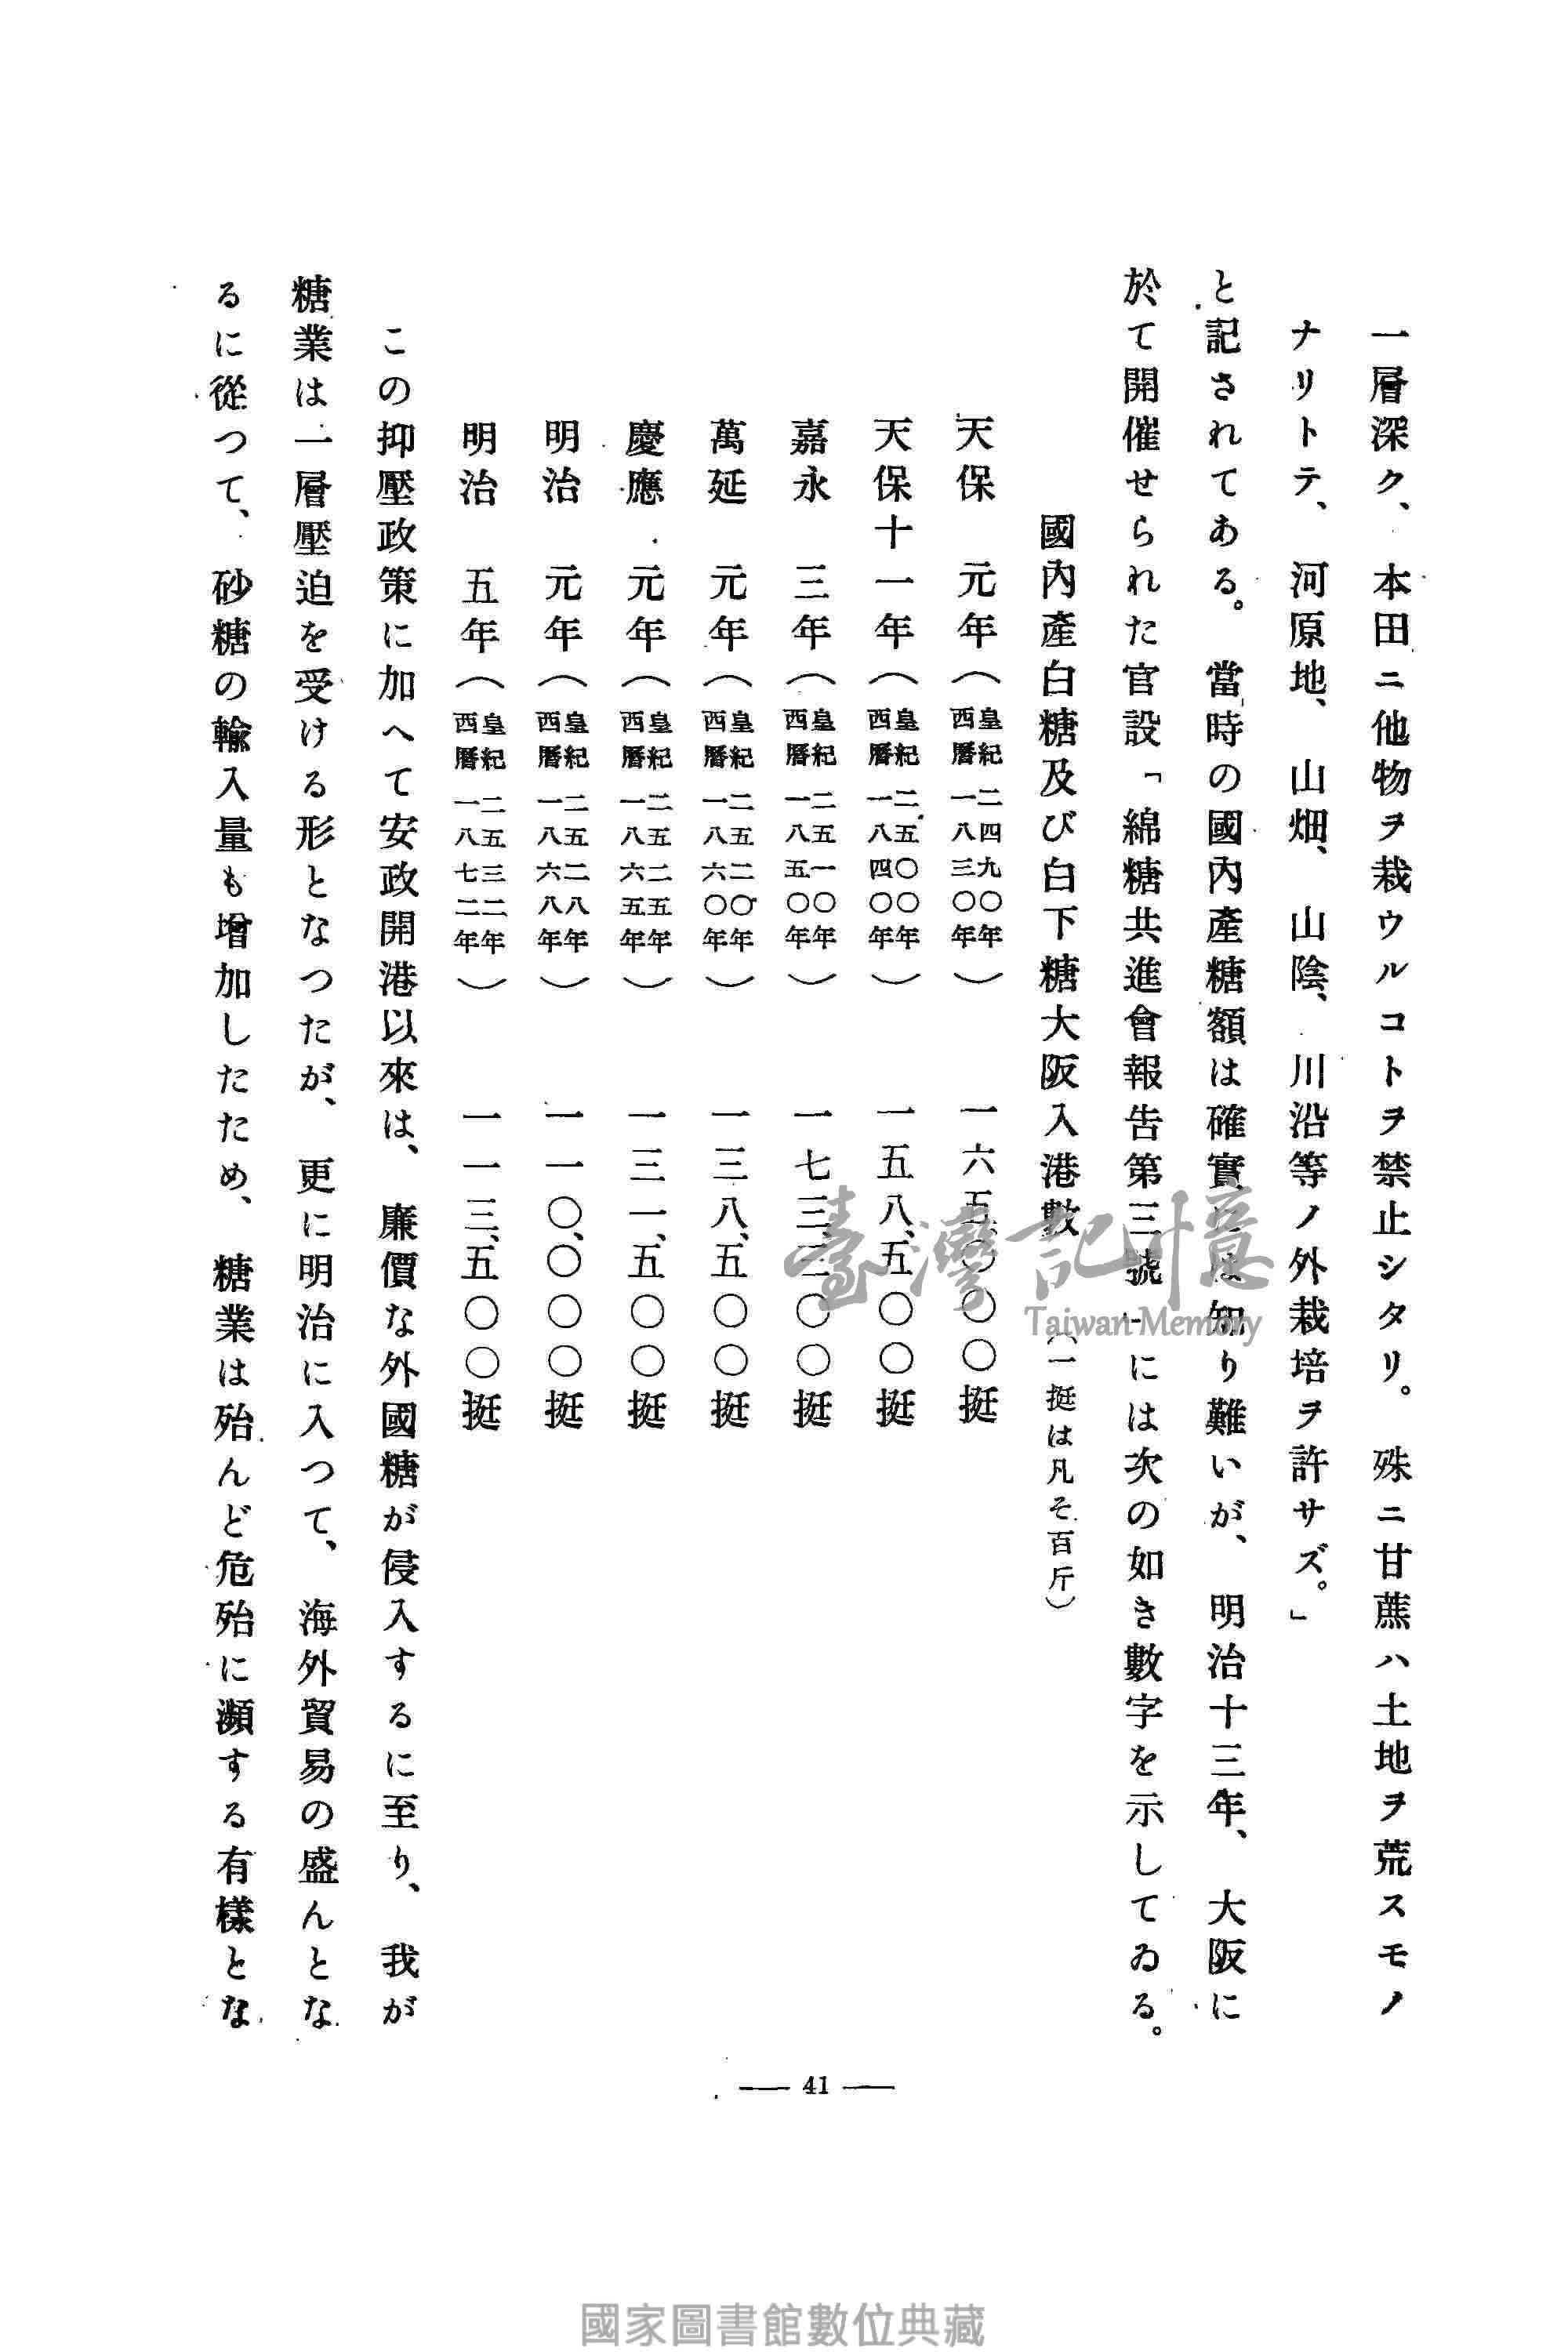 一層深ク、本田ニ他物ヲ栽ウルコトヲ禁止シタリ。殊ニ甘蔗ハ土地ヲ荒スモノ
ナリトテ、河原地、山畑、山陰、川沿等ノ外栽培ヲ許サズ。」
と記されてある。當時の國內產糖額は確實には知り難いが、明治十三年、大阪に
於て開催せられた官設「綿糖共進會報告第三號」には次の如き數字を示してゐる。
國內產白糖及び白下糖大阪入港數（一挺は凡そ百斤）
天保元年（皇紀二四九〇年 西曆一八三〇年）一六五、〇〇〇挺
天保十一年（皇紀二五〇〇年 西曆一八四〇年）一五八、五〇〇挺
嘉永三年（皇紀二五一〇年 西曆一八五〇年）一七三、三〇〇挺
萬延元年（皇紀二五二〇年 西曆一八六〇年）一三八、五〇〇挺
慶應元年（皇紀二五二五年 西曆一八六五年）一三一、五〇〇挺
明治元年（皇紀二五二八年 西曆一八六八年）一一〇、〇〇〇挺
明治五年（皇紀二五三二年 西曆一八七二年）一一三、五〇〇挺
この抑壓政策に加へて安政開港以來は、廉價な外國糖が侵入するに至り、我が
糖業は一層壓迫を受ける形となつたが、更に明治に入つて、海外貿易の盛んとな
るに從つて、砂糖の輸入量も增加したため、糖業は殆んど危殆に瀕する有樣とな
— 41 —
臺灣記憶
Taiwan Memory
國家圖書館數位典藏